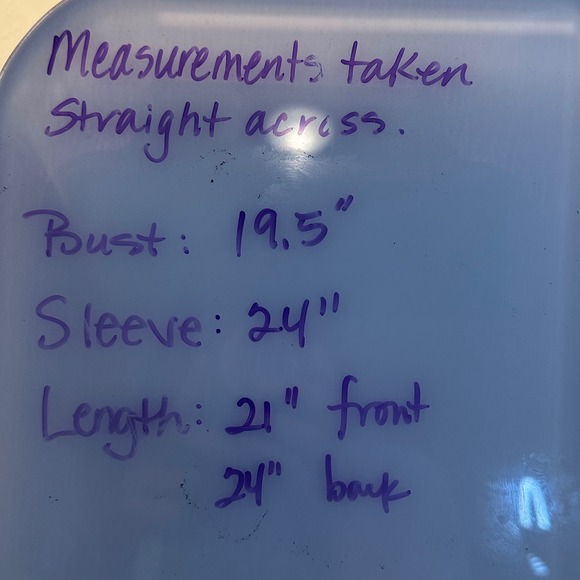 Measurements taken
Straight across.
Bust: 19.5"
Sleeve: 24"
Length: 21" front
24" back